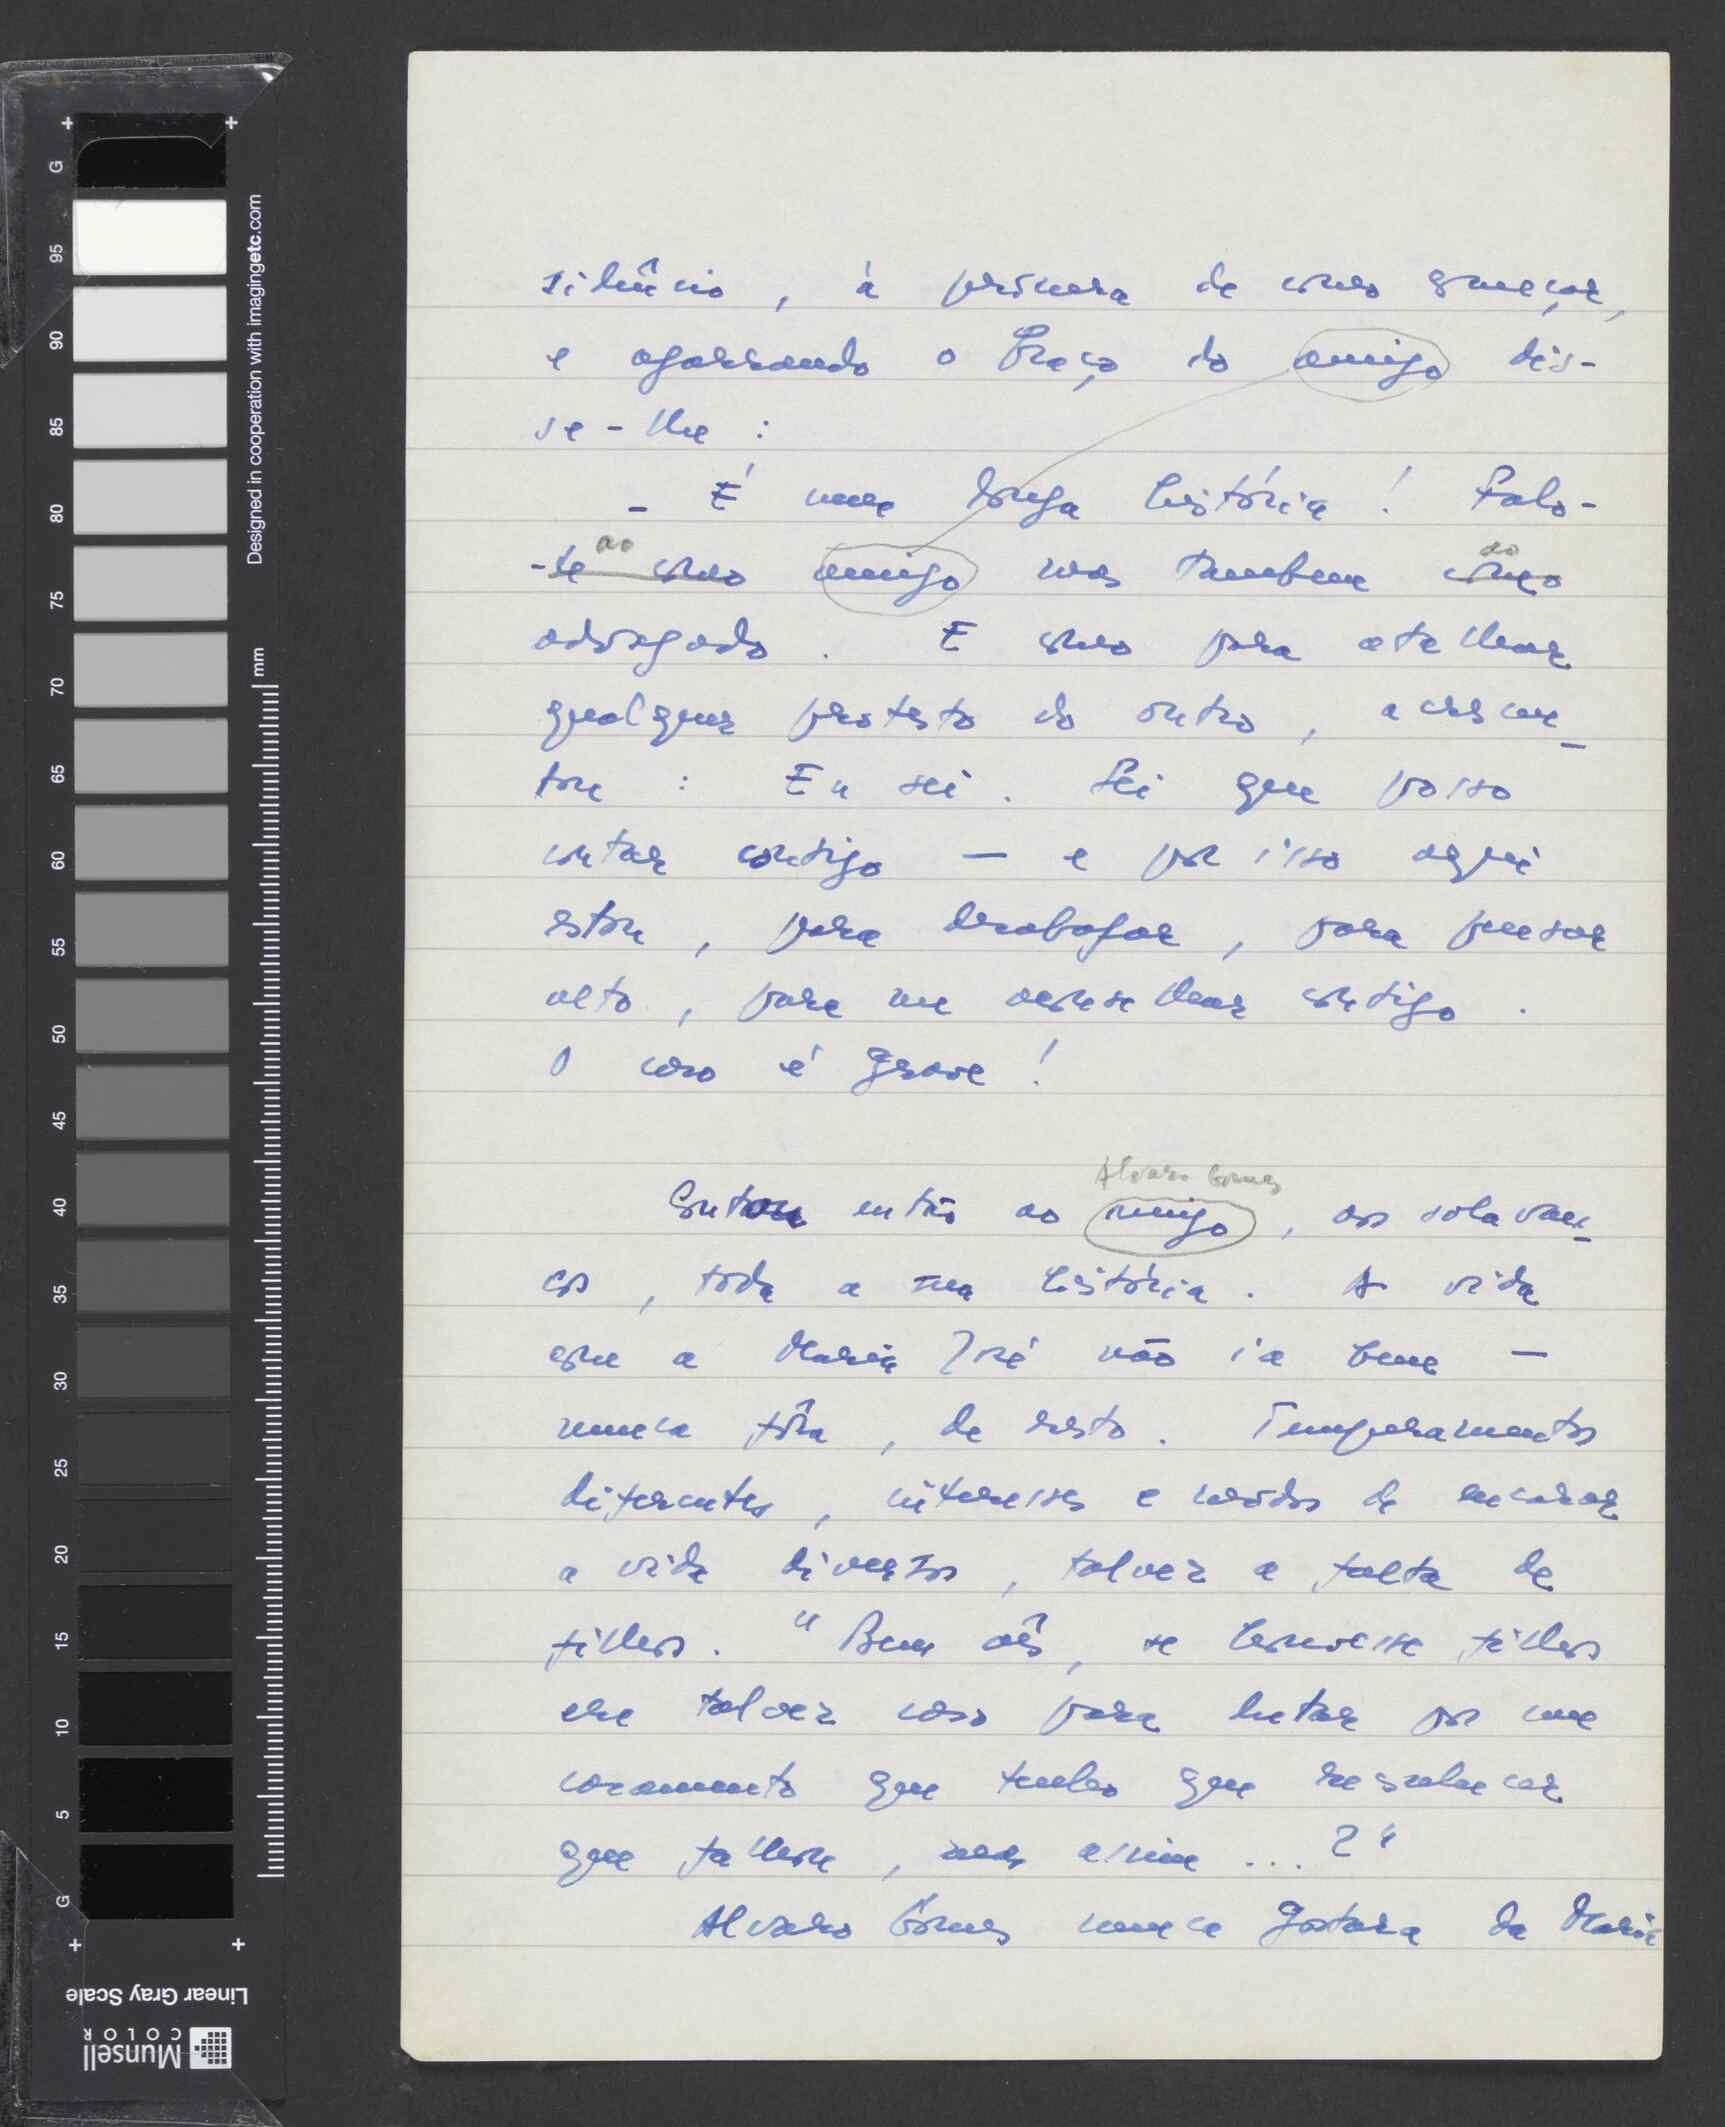 silêncio, à procura de como começar,
e agarrando o braço do amigo dis-
se-lhe:
- É uma longa história! Falo-
ao do
-te como amigo mas tambem como
advogado. E como para atalhar
qualquer protesto do outro, acrescen_
tou: Eu sei. Sei que posso
contar contigo — e por isso aqui
estou, para desabafar, para pensar
alto, para me aconselhar contigo.
O caso é grave!
Alvaro Gomes
Contou então ao amigo, aos solavan_
cos, toda a sua história. A vida
com a Maria José não ia bem —
nunca fôra, de resto. Temperamentos
diferentes, interesses e modos de encarar
a vida diversos, talvez a falta de
filhos. "Bem vês, se houvesse filhos
era talvez caso para lutar por um
casamento que tenho que reconhecer
que falhou, mas assim ...?"
Alvaro Gomes nunca gostara da Maria
G 95 90 85 80 75 70 65 60 55 50 45 40 35 30 25 20 15 10 5 G
Designed in cooperation with imagingetc.com
mm
Linear Gray Scale
Munsell
COLOR